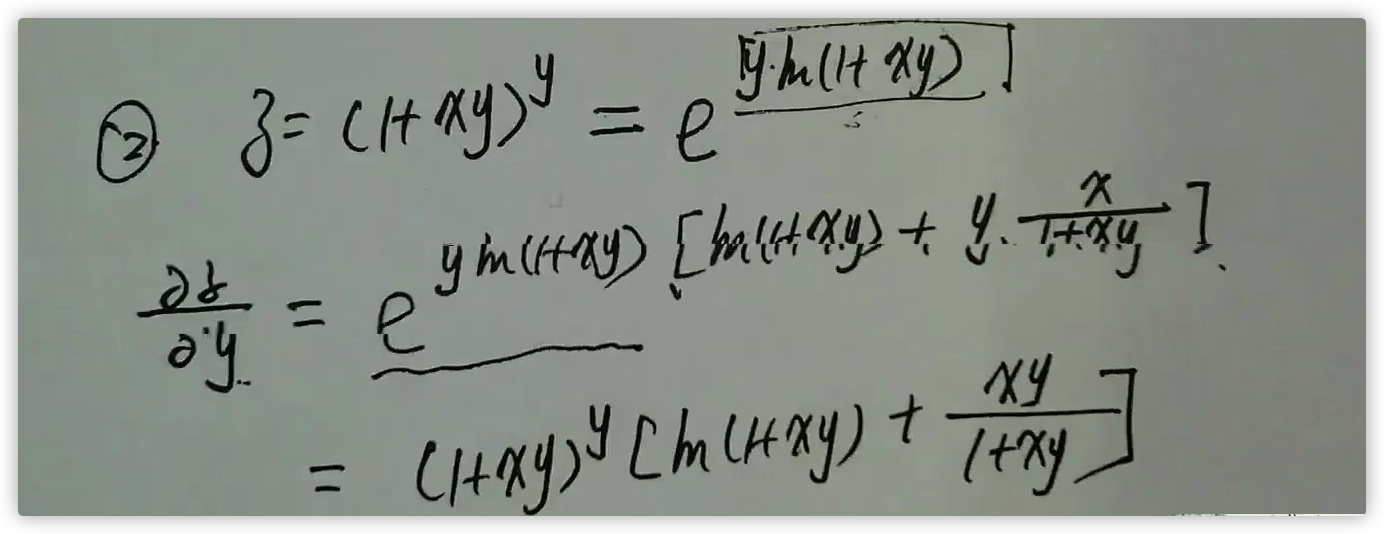 ② z = (1+xy)^y = e^{[y·ln(1+xy)]}
∂z/∂y = e^{y ln(1+xy)} [ln(1+xy) + y · x/(1+xy)].
= (1+xy)^y [ln(1+xy) + xy/(1+xy)]